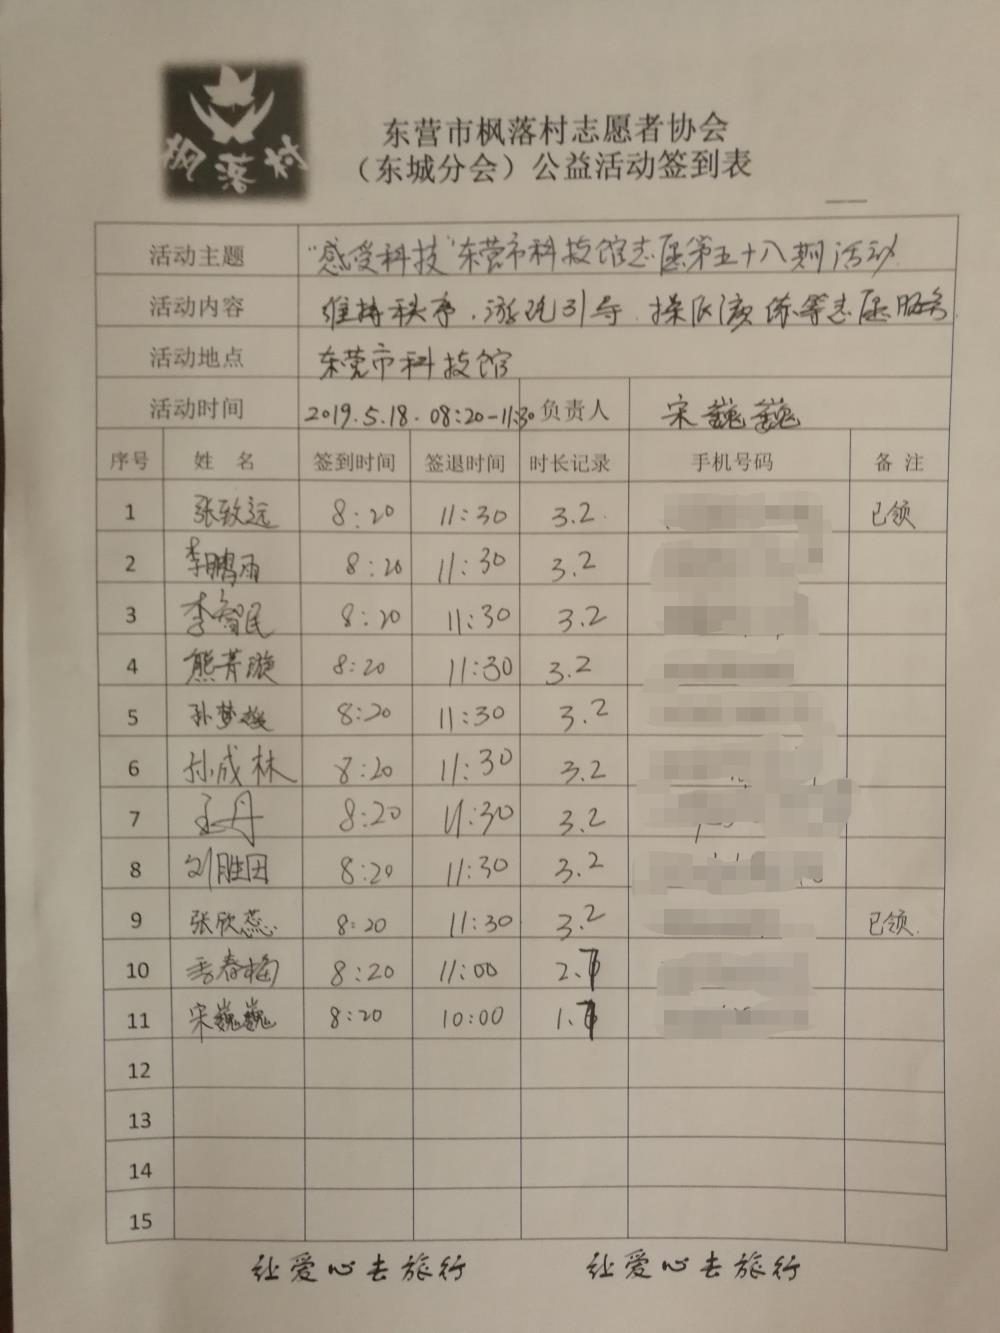 枫落村
东营市枫落村志愿者协会
（东城分会）公益活动签到表
活动主题 “感受科技”东营市科技馆志愿第五十八期活动
活动内容 维持秩序、游玩引导、操作演练等志愿服务
活动地点 东营市科技馆
活动时间 2019.5.18. 08:20-11:30 负责人 宋巍巍
序号 姓 名 签到时间 签退时间 时长记录 手机号码 备 注
1 张致远 8:20 11:30 3.2 已领
2 李鹏雨 8:20 11:30 3.2
3 李智民 8:20 11:30 3.2
4 熊菁璇 8:20 11:30 3.2
5 孙梦 8:20 11:30 3.2
6 孙成林 8:20 11:30 3.2
7 王丹 8:20 11:30 3.2
8 刘胜田 8:20 11:30 3.2
9 张欣蕊 8:20 11:30 3.2 已领
10 春梅 8:20 11:00 2.7
11 宋巍巍 8:20 10:00 1.7
12
13
14
15
让爱心去旅行 让爱心去旅行